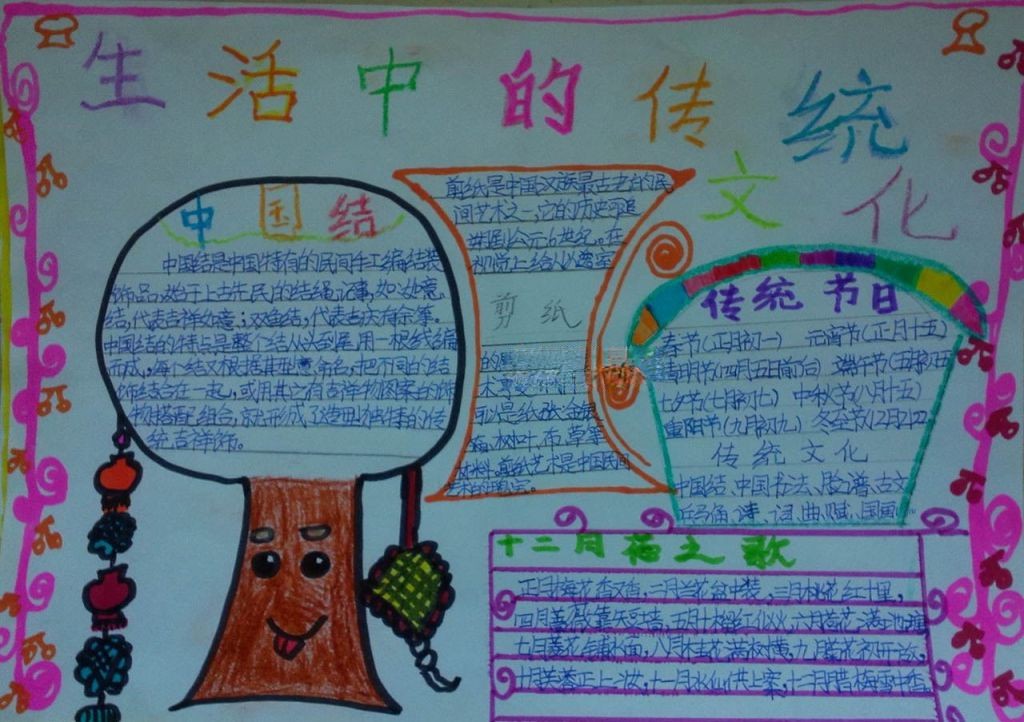 生活中的传统
文化
中国结
中国结是中国特有的民间手工编结装
饰品,始于上古先民的结绳记事,如:如意
结,代表吉祥如意;双鱼结,代表吉庆有余等。
中国结的特点是整个结从头到尾用一根线编
而成,每个结又根据其型意命名,把不同的结
饰结合在一起,或用其它有吉祥物图案的饰
物搭配组合,就形成了造型独特的传
统吉祥饰。
剪纸是中国汉族最古老的民
间艺术之一,它的历史可追
到公元6世纪。在
视觉上给人以透空
剪纸
的
术享受
以是纸张金银
树叶、布、草等
材料。剪纸艺术是中国民间
传统节日
春节(正月初一) 元宵节(正月十五)
清明节(四月五日前后) 端午节(五月初五)
七夕节(七月初七) 中秋节(八月十五)
重阳节(九月初九) 冬至节
传统文化
中国结、中国书法、脸谱、古文
诗、词、曲、赋、国画
十二月花之歌
正月梅花香又香,二月兰花盆中装,三月桃花红十里,
四月蔷薇靠矢攻墙,五月十榴红似火,六月荷花满池塘
七月菱花铺水面,八月桂花满枝黄,九月菊花初开放,
十月芙蓉正上妆,十一月水仙供上案,十二月腊梅雪中香。